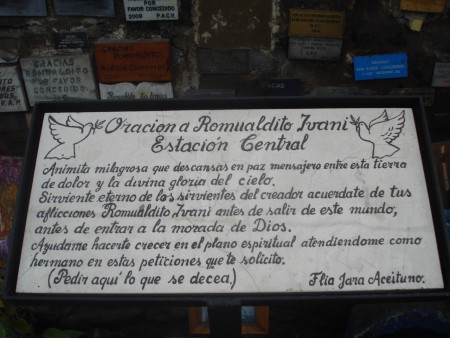 POR FAVOR
CONCEDIDO
2008
P.A.C.H
GRACIAS
ROMUALDITO
GRACIAS
ROMUALDO
POR FAVOR
CONCEDIDO
Oracion a Romualdito Ivani
Estación Central
Animita milagrosa que descansas en paz mensajero entre esta tierra
de dolor y la divina gloria del cielo.
Sirviente eterno de los sirvientes del creador acuerdate de tus
aflicciones Romualdito Ivani antes de salir de este mundo,
antes de entrar a la morada de Dios.
Ayudame hacerte crecer en el plano espiritual atendiendome como
hermano en estas peticiones que te solicito.
(Pedir aquí lo que se decea.) Flia Jara Aceituno.